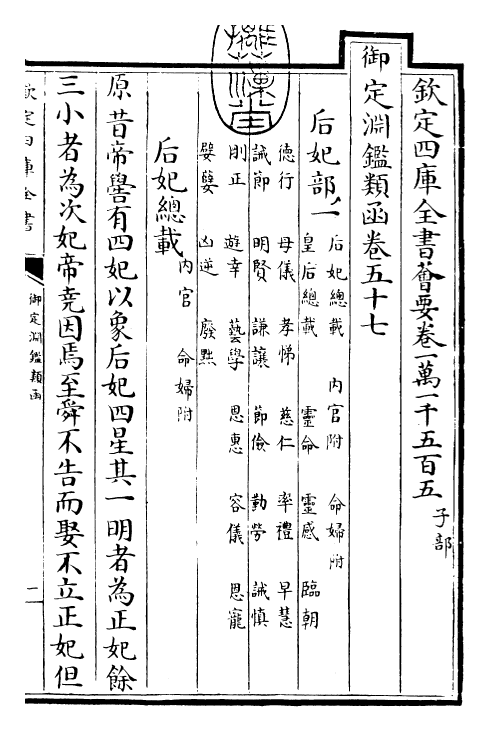 欽定四庫全書薈要卷一萬一千五百五 子部
御定淵鑑類函卷五十七
后妃部一
后妃總載 內官附 命婦附
皇后總載 靈命 靈感 臨朝
德行 母儀 孝悌 慈仁 率禮 早慧
誡節 明賢 謙讓 節儉 勤勞 誡慎
則正 遊幸 藝學 恩惠 容儀 恩寵
嬖孽 凶逆 廢黜
后妃總載 內官 命婦附
原昔帝嚳有四妃以象后妃四星其一明者為正妃餘
三小者為次妃帝堯因焉至舜不告而娶不立正妃但
欽定四庫全書
御定淵鑑類函
一
摛藻堂